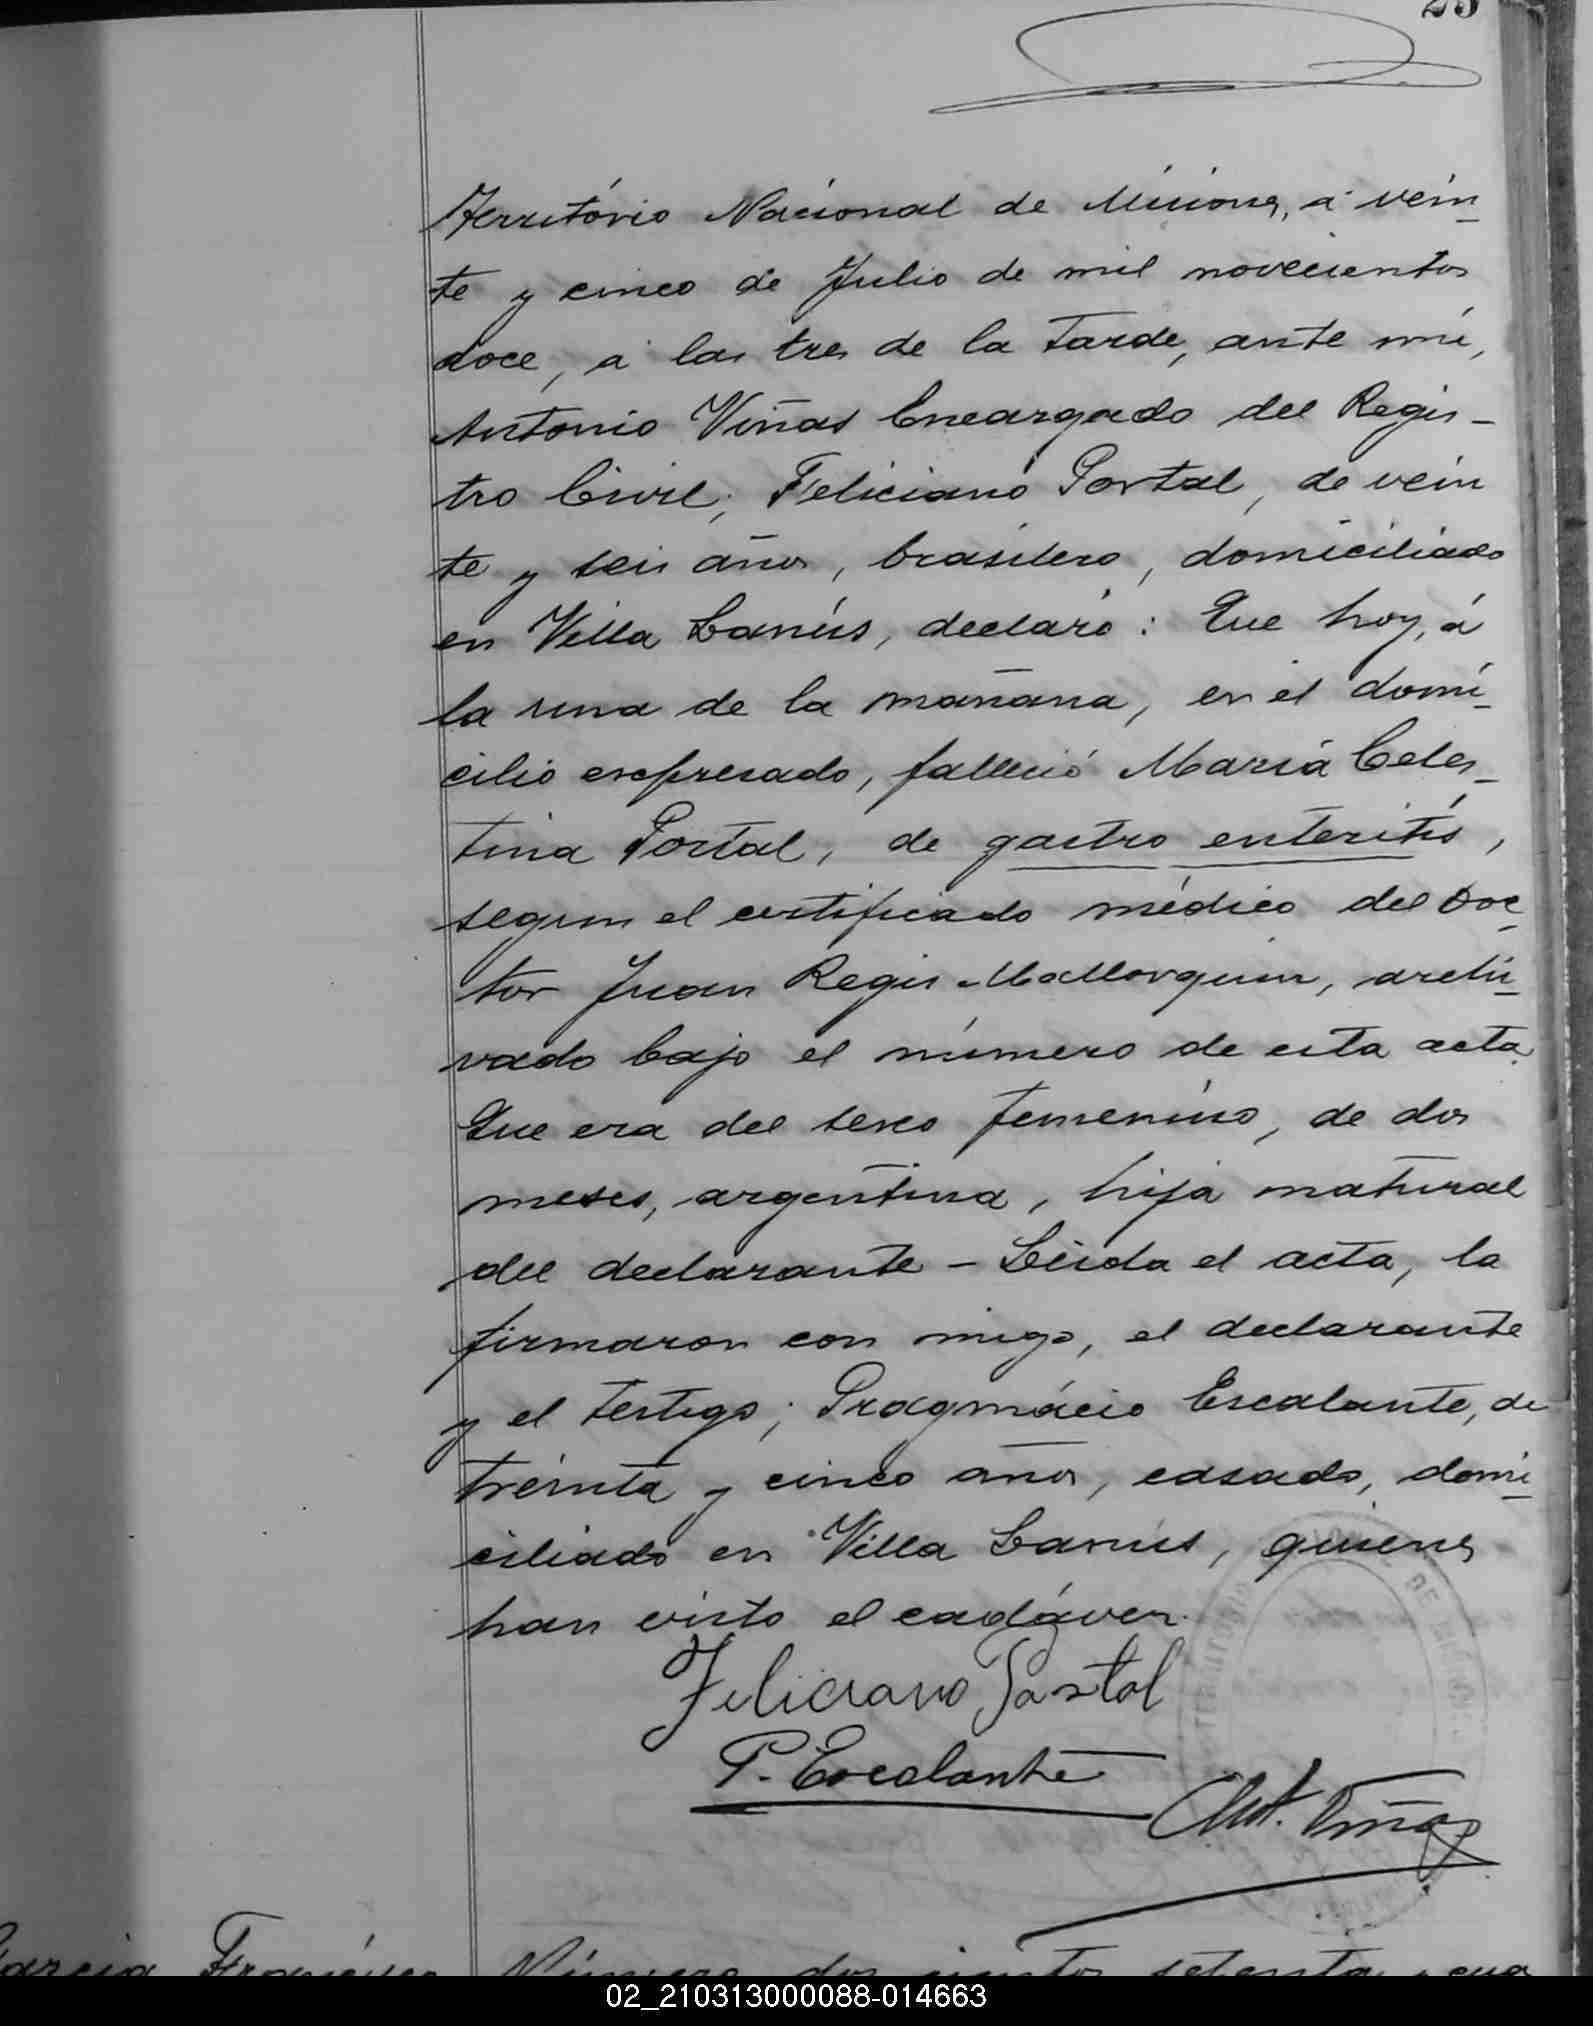 25
Território Nacional de Misiones, á vein
te y cinco de Julio de mil novecientos
doce, á las tres de la tarde, ante mi,
Antonio Viñas Encargado del Regis-
tro Civil; Feliciano Portal, de vein
te y seis años, brasilero, domiciliado
en Villa Lanús, declaró: Que hoy, á
la una de la mañana, en el domi-
cilio expresado, falleció María Celes-
tina Portal, de gastro enteritis,
segun el certificado médico del Doc-
tor Juan Regis Mallorquin, archi-
vado bajo el número de esta acta.
Que era del sexo femenino, de dos
meses, argentina, hija natural
del declarante - Leida el acta, la
firmaron con migo, el declarante
y el testigo; Pragmácio Escalante, de
treinta y cinco años, casado, domi-
ciliado en Villa Lanús, quienes
han visto el cadáver.
Feliciano Portal
P. Escalante
Ant. Viñas
TERRITORIO DE MISIONES
Garcia Francisco
Número dos ciento setenta y cua
02_210313000088-014663